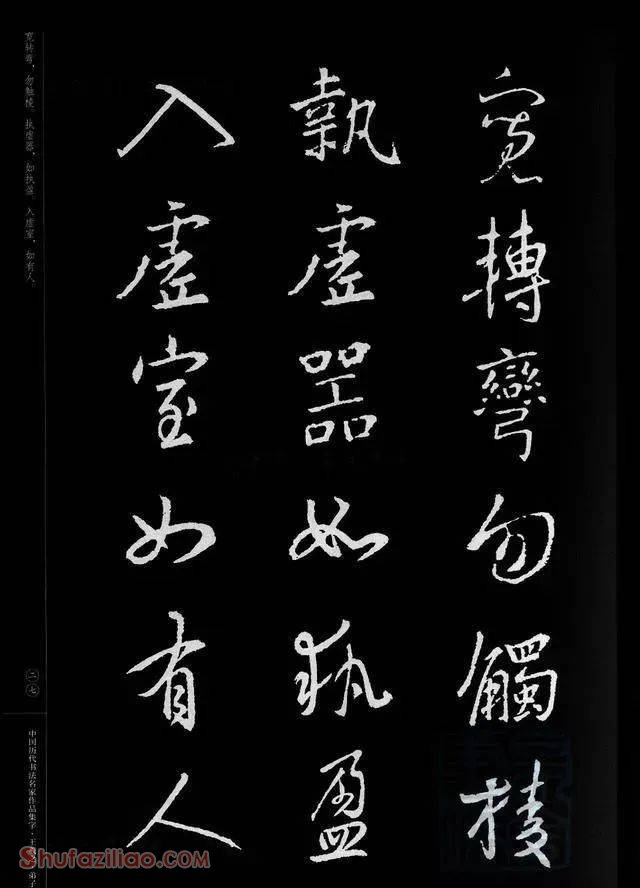 寬轉彎勿觸棱
執虛器如執盈
入虛室如有人
宽转弯，勿触棱。执虚器，如执盈。入虚室，如有人。
二七
中国历代书法名家作品集字·王
弟子
Shufaziliao.com